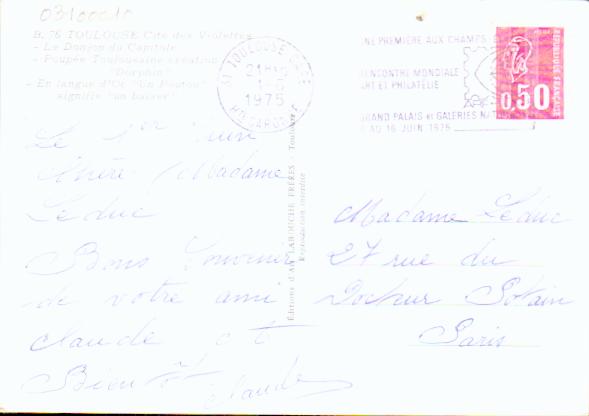 03100010
B. 76 TOULOUSE Cité des Violettes
- Le Donjon du Capitole
- Poupée Toulousaine création
"Dorphin"
- En langue d'Oc "Un Poutou"
signifie "un baiser"
31 TOULOUSE GARE
21H
1975
HTE GARONNE
NE PREMIÈRE AUX CHAMPS
RENCONTRE MONDIALE
ART ET PHILATÉLIE
GRAND PALAIS et GALERIES NAT
AU 16 JUIN 1975
REPUBLIQUE FRANÇAISE
0,50
Éditions d'Art LABOUCHE FRÈRES - Toulouse
Reproduction interdite
Le 1er Juin
Chère Madame
Leduc
Bons Souvenir
de votre ami
claude et
Bien tôt
Claude
Madame Leduc
27 rue du
Docteur Potain
Paris